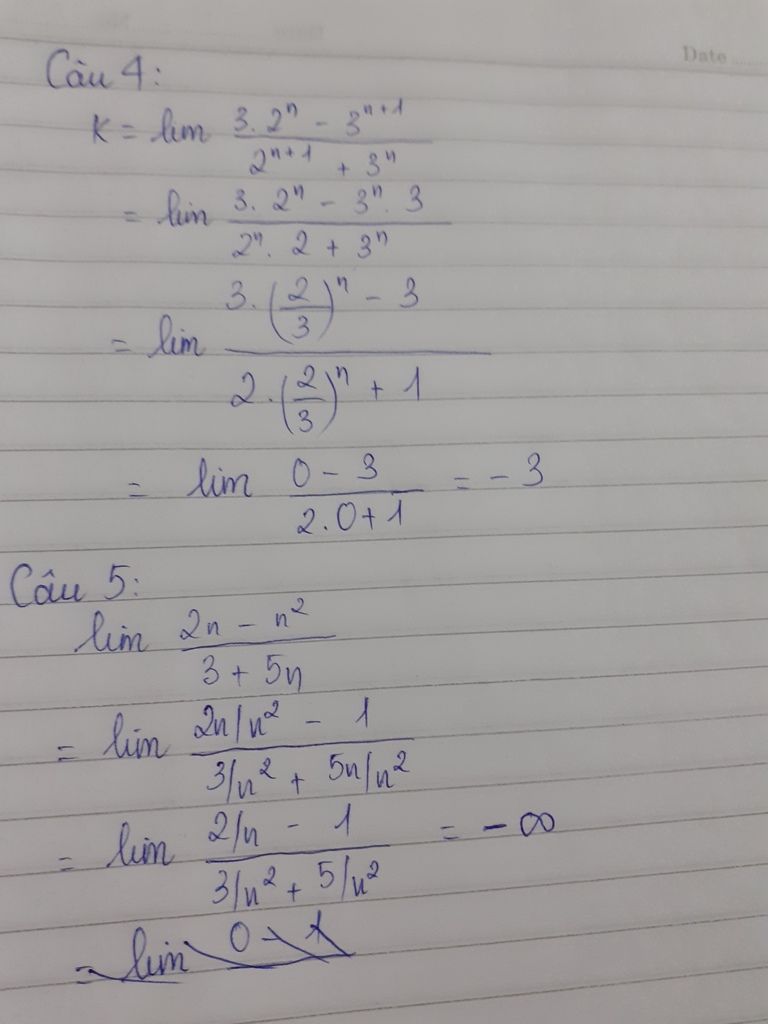 Date
Câu 4:
K = lim (3. 2ⁿ - 3ⁿ⁺¹)/(2ⁿ⁺¹ + 3ⁿ)
= lim (3. 2ⁿ - 3ⁿ. 3)/(2ⁿ. 2 + 3ⁿ)
= lim (3. (2/3)ⁿ - 3)/(2. (2/3)ⁿ + 1)
= lim (0 - 3)/(2. 0 + 1) = - 3
Câu 5:
lim (2n - n²)/(3 + 5n)
= lim (2n/n² - 1)/(3/n² + 5n/n²)
= lim (2/n - 1)/(3/n² + 5/n²) = - ∞
= lim 0 - 1